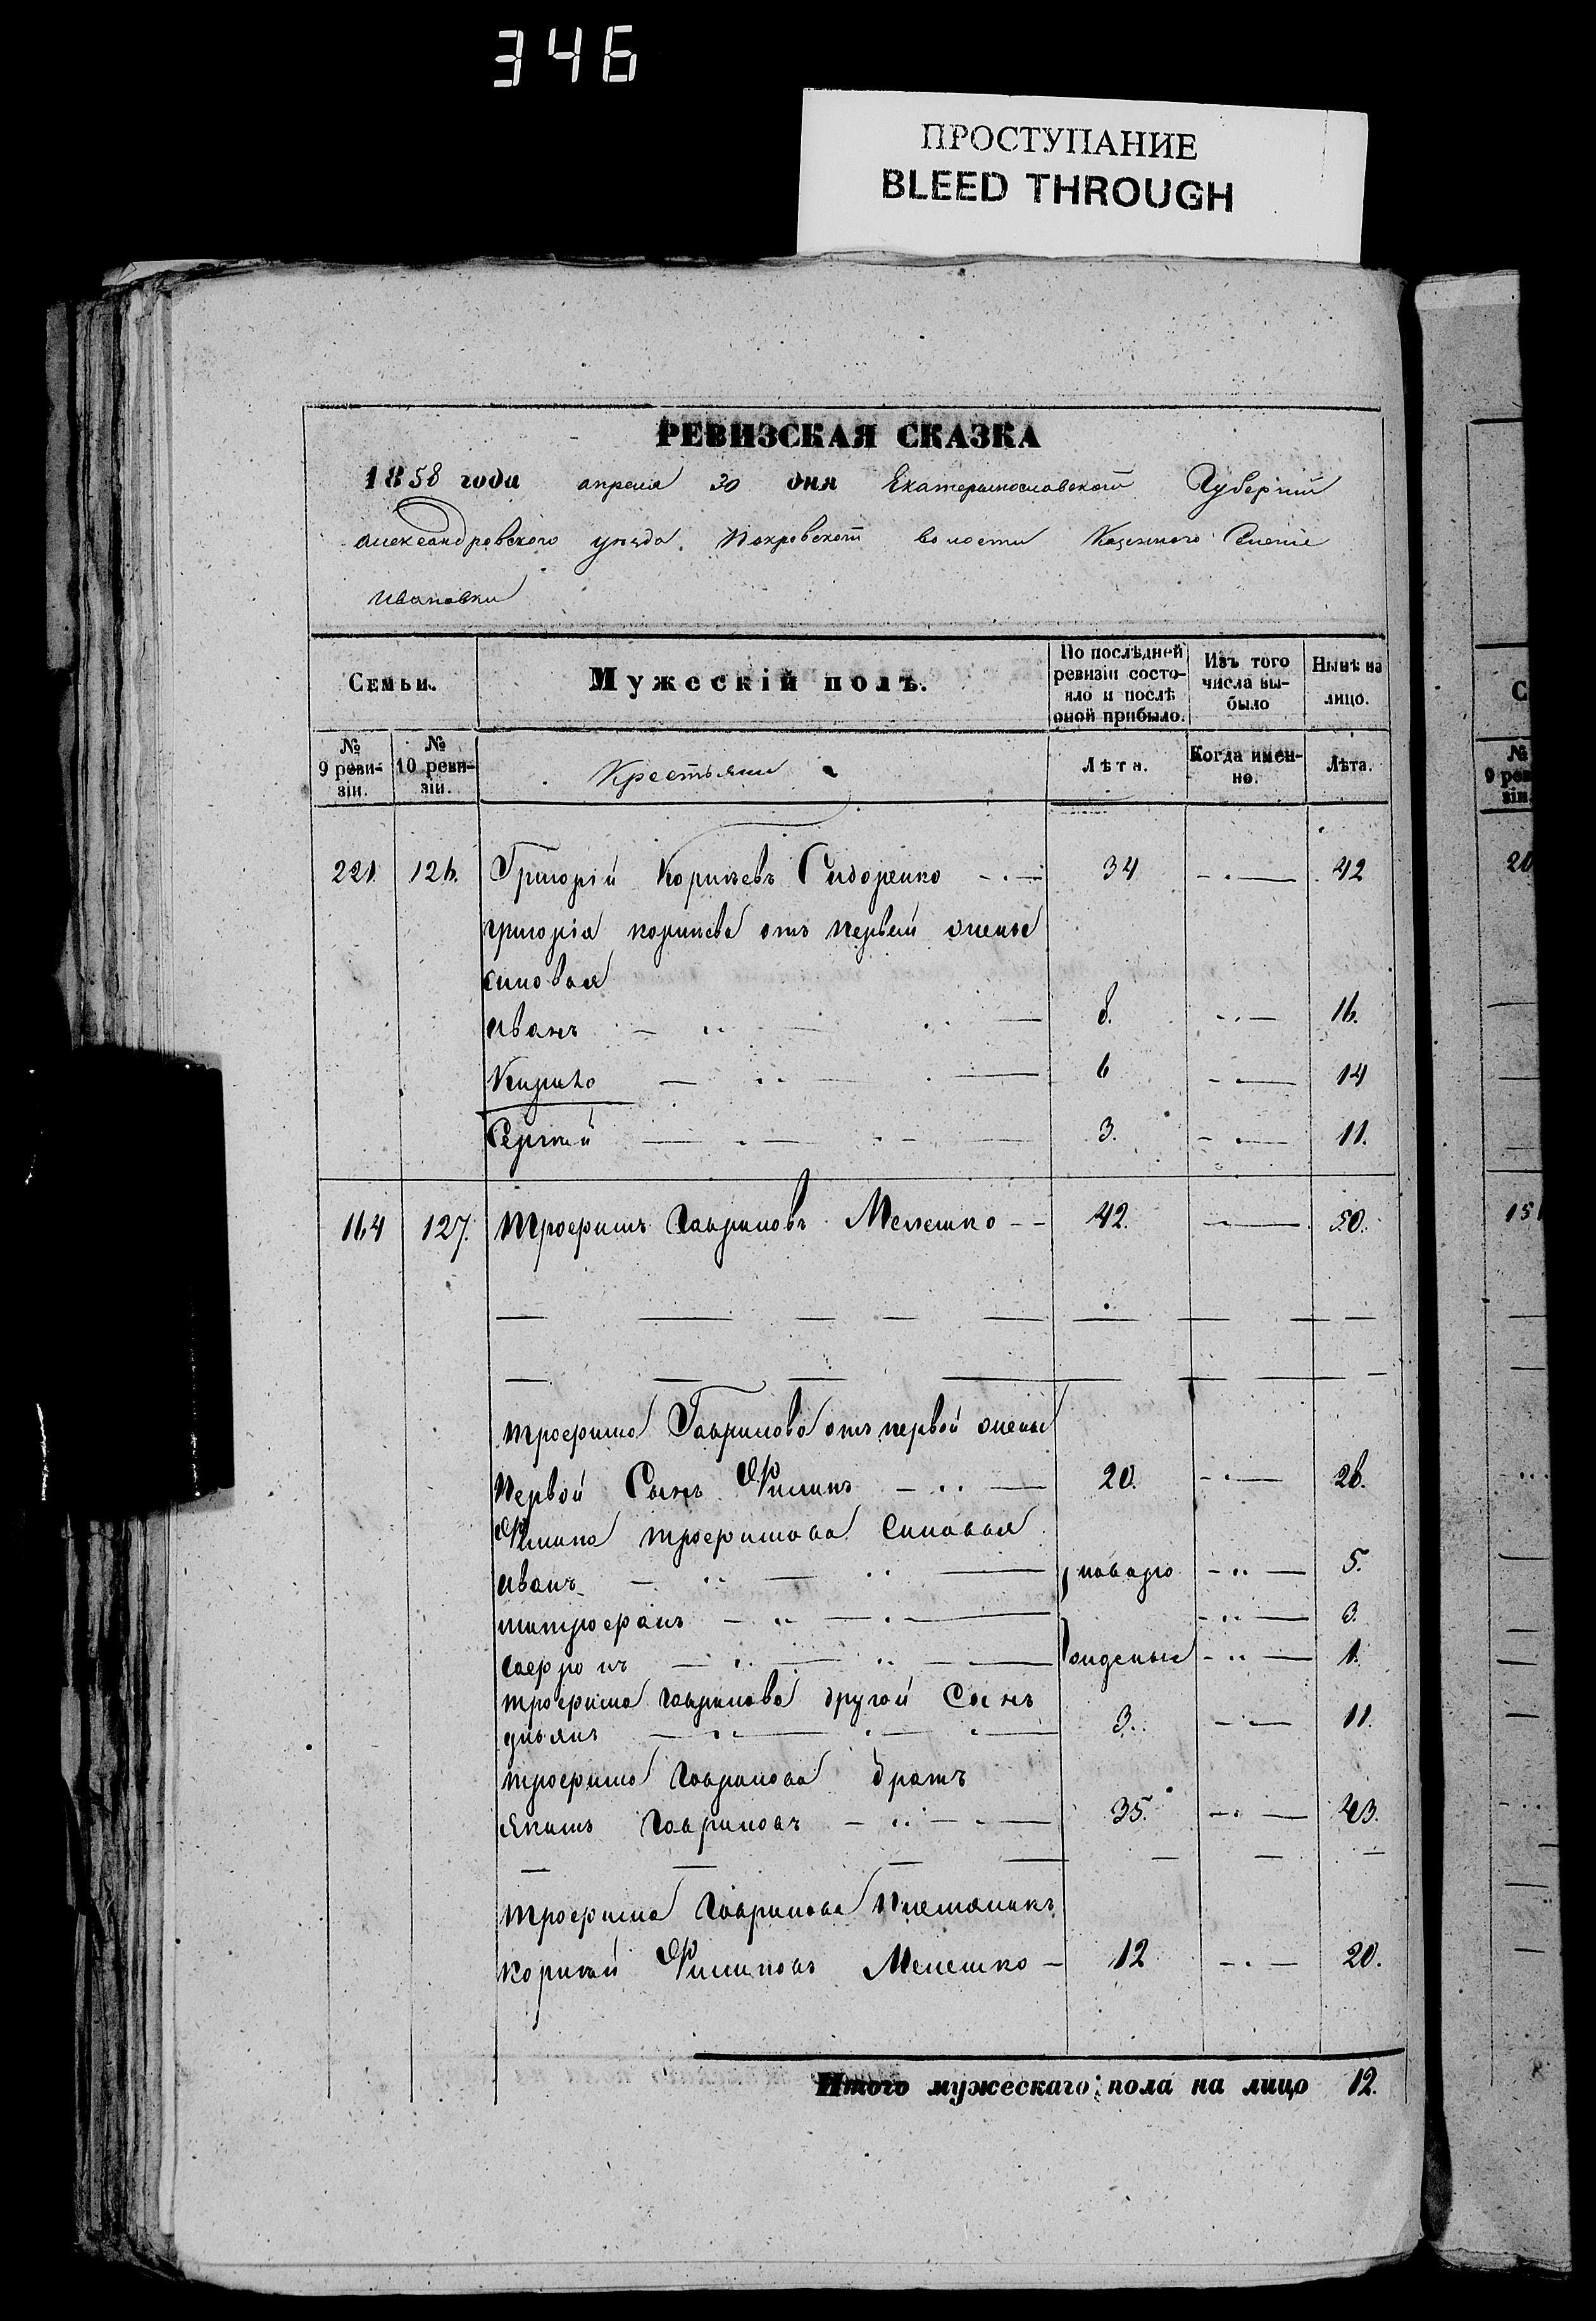 346
ПРОСТУПАНИЕ
BLEED THROUGH
РЕВИЗСКАЯ СКАЗКА
1858 года апреля 30 дня Екатеринославской Губернии
Александровского уезда Покровской волости Казенного Селения
Ивановки
Семьи.
Мужескій полъ.
По послѣдней ревизіи состояло и послѣ оной прибыло.
Изъ того числа выбыло
Нынѣ на лицо.
№ 9 ревизіи.
№ 10 ревизіи.
Крестьяни
Лѣта.
Когда именно.
Лѣта.
221. 126. Григорій Корнѣевъ Сидоренко 34 42
Григорія корнѣева отъ первой жены
синовья
Иванъ 8. 16.
Кирило 6 14
Сергѣй 3. 11.
164 127. Трофимъ Гавриловъ Мелешко 42. 50.
Трофима Гаврилова отъ первой жены
Первой Сынъ Филипъ 20. 28.
Филипа Трофимова Синовья
Иванъ новоро 5.
Митрофанъ 3.
Сафронъ жденые 1.
Трофима Гаврилова другой Сынъ
ульянъ 3. 11.
Трофима Гаврилова братъ
Якимъ Гавриловъ 35. 43.
Трофима Гаврилова Племяникъ
Корнѣй Филиповъ Мелешко 12 20.
Итого мужескаго пола на лицо 12.
С
№
9 реви
зіи.
20
15